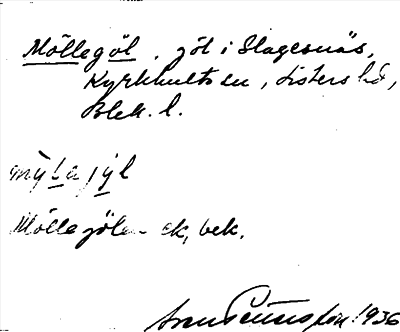 Möllegöl, göl i Slagesnäs,
Kyrkhults sn, Listers hd,
Blek. l.
mỳlajỳl
Möllegölen ek, bek.
1936